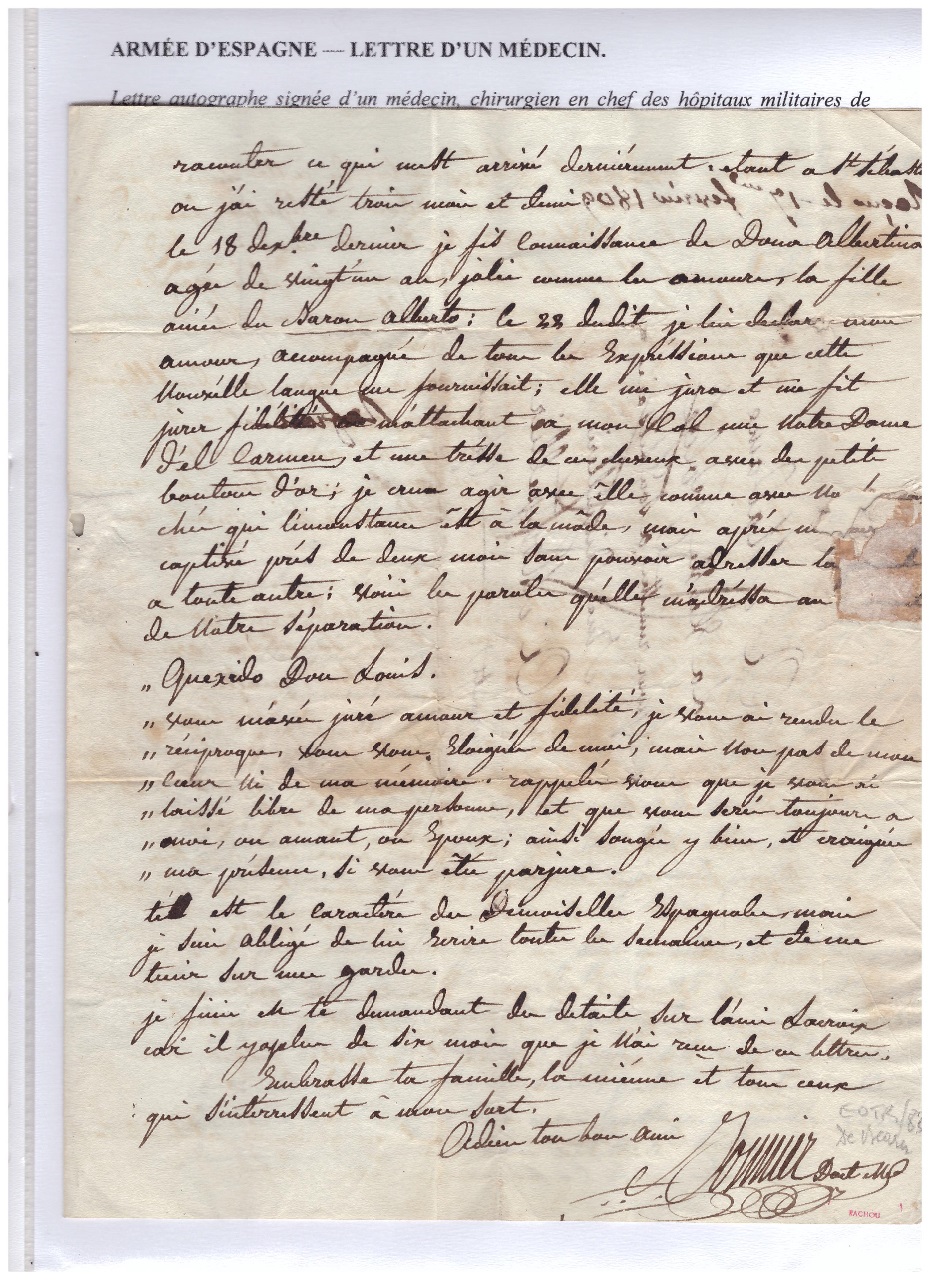 ARMÉE D'ESPAGNE — LETTRE D'UN MÉDECIN.
Lettre autographe signée d'un médecin, chirurgien en chef des hôpitaux militaires de
raconter ce qui mest arrivé derniérement. etant a St Sébast
ou j'ai resté trois mois et demi
le 18 dexbre dernier je fis connaissance de Dona Albertina
agée de vingt'un ans, jolie comme les amours, la fille
ainée du Baron Alberto: le 22 dudit je lui declar mon
amour, accompagné de tous les Expressions que cette
Nouvélle langue me fournissait; elle me jura et me fit
jurer fidélité m'attachant a mon Col une Notre Dame
d'el Carmen, et une trésse de ces cheveux avec des petits
boutons d'or; je crus agir avec élle comme avec No
ché qui l'inconstance ést à la môde, mais aprés
captivé prés de deux mois sans pouvoir adresser la
a toute autre; voici les paroles qu'élle m'adréssa au
de Notre séparation.
„ Querido Don Louis.
„ vous m'avés juré amour et fidelité, je vous ai rendu le
„ réciproque, vous vous Eloignés de moi, mais Non pas de mon
„ Cœur Ni de ma mémoire. rappelés vous que je vous ai
„ laissé libre de ma personne, et que vous serés toujours a
„ moi, ou amant, ou Epoux; ainsi songés y bien, et craignés
„ ma présence, si vous étes parjure.
tél est le caractére des Demoiselles Espagnoles, mais
je suis obligé de lui Ecrire toutes les semaines, et de me
tenir sur mes gardes.
je finis en te demandant des detaits sur l'ami Lacroix
car il yaplus de six mois que je N'ai reçu de ces lettres.
Embrasse ta famille, la miénne et tous ceux
qui s'intérressent à mon sort.
Adieu ton bon ami
Doct Md
RACHOU